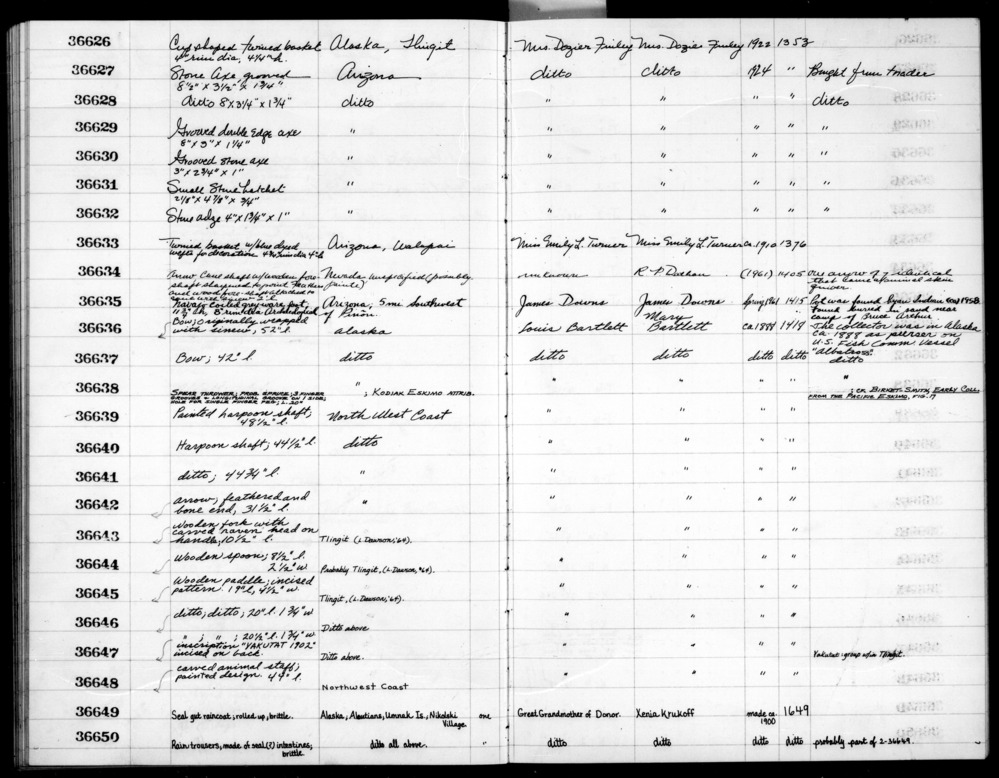 36626 Cup shaped twined basket Alaska, Tlingit Mrs. Dozier Finley Mrs. Dozier Finley 1922 1353
4" rim dia, 4 1/4" h.
36627 Stone Axe grooved Arizona ditto ditto 1924 " Bought from trader
8 1/2" x 3 1/2" x 1 3/4"
36628 ditto 8 x 3 1/4" x 1 3/4" ditto " " " " ditto
36629 Grooved double Edge axe " " " " " "
8" x 3" x 1 1/4"
36630 Grooved stone axe " " " " " "
3" x 2 3/4" x 1"
36631 Small Stone hatchet " " " " "
2 1/8" x 4 7/8" x 3/4"
36632 Stone adze 4" x 1 3/4" x 1" " " " " " "
36633 Twined basket w/blue dyed Arizona, Walapai Miss Emily L. Turner Miss Emily L. Turner ca. 1910 1376
wefts for decoration
36634 Arrow Cane shaft w/wooden fore- Nevada unspecified (possibly unknown R.P. (1961) 1405 One arrow of 7 identical
shaft sharpened to point that came
and wood fore-shaft attached to
36635 Navajo coiled gray ware pot, Arizona, 5 mi southwest James Downs James Downs Spring 1961 1415 Pot was found by an Indian
of Piñon. found buried in sand near
camp of Bruce Arthur.
36636 Bow; originally wrapped Alaska Louis Bartlett Mary Bartlett ca. 1888 1418 The collector was in Alaska
with sinew, 52" l. ca. 1888 as purser on
U.S. Fish Comm Vessel
"Albatross".
36637 Bow; 42" l ditto ditto ditto ditto ditto ditto
36638 Spear thrower, prob. spruce; 3 finger " ; Kodiak Eskimo attrib. " " " " " ; cf. Birket-Smith, Early Coll.
grooves & longitudinal groove on 1 side; from the Pacific Eskimo, fig. 17
hole for single finger peg; L. 20"
36639 Painted harpoon shaft; North West Coast " " " "
48 1/2" l.
36640 Harpoon shaft; 44 1/2" l. ditto " " " "
36641 ditto; 44 3/4" l. " " " " "
36642 arrow; feathered and " " " " "
bone end, 31 1/2" l.
36643 Wooden fork with " " " "
carved raven head on
handle; 10 1/2" l. Tlingit (L. Dawson, '64).
36644 Wooden spoon; 8 1/2" l. " " " "
2 1/2" w Probably Tlingit, (L. Dawson, '64).
36645 Wooden paddle; incised " " " "
pattern. 19" l, 4 1/2" w Tlingit, (L. Dawson, '64).
36646 ditto; ditto; 20" l. 1 3/4" w " " " "
Ditto above
36647 " ; " ; 20 1/2" l. 1 3/4" w " " " "
inscription "YAKUTAT 1902"
incised on back. Ditto above. Yakutat: group w/in Tlingit.
36648 carved animal staff; " " " "
painted design. 44" l. Northwest Coast
36649 Seal gut raincoat; rolled up, brittle. Alaska, Aleutians, Umnak Is., Nikolski Village. one Great Grandmother of Donor. Xenia Krukoff made ca. 1900 1649
36650 Rain trousers, made of seal(?) intestines; ditto all above. " ditto ditto ditto ditto probably part of 2-36649.
brittle